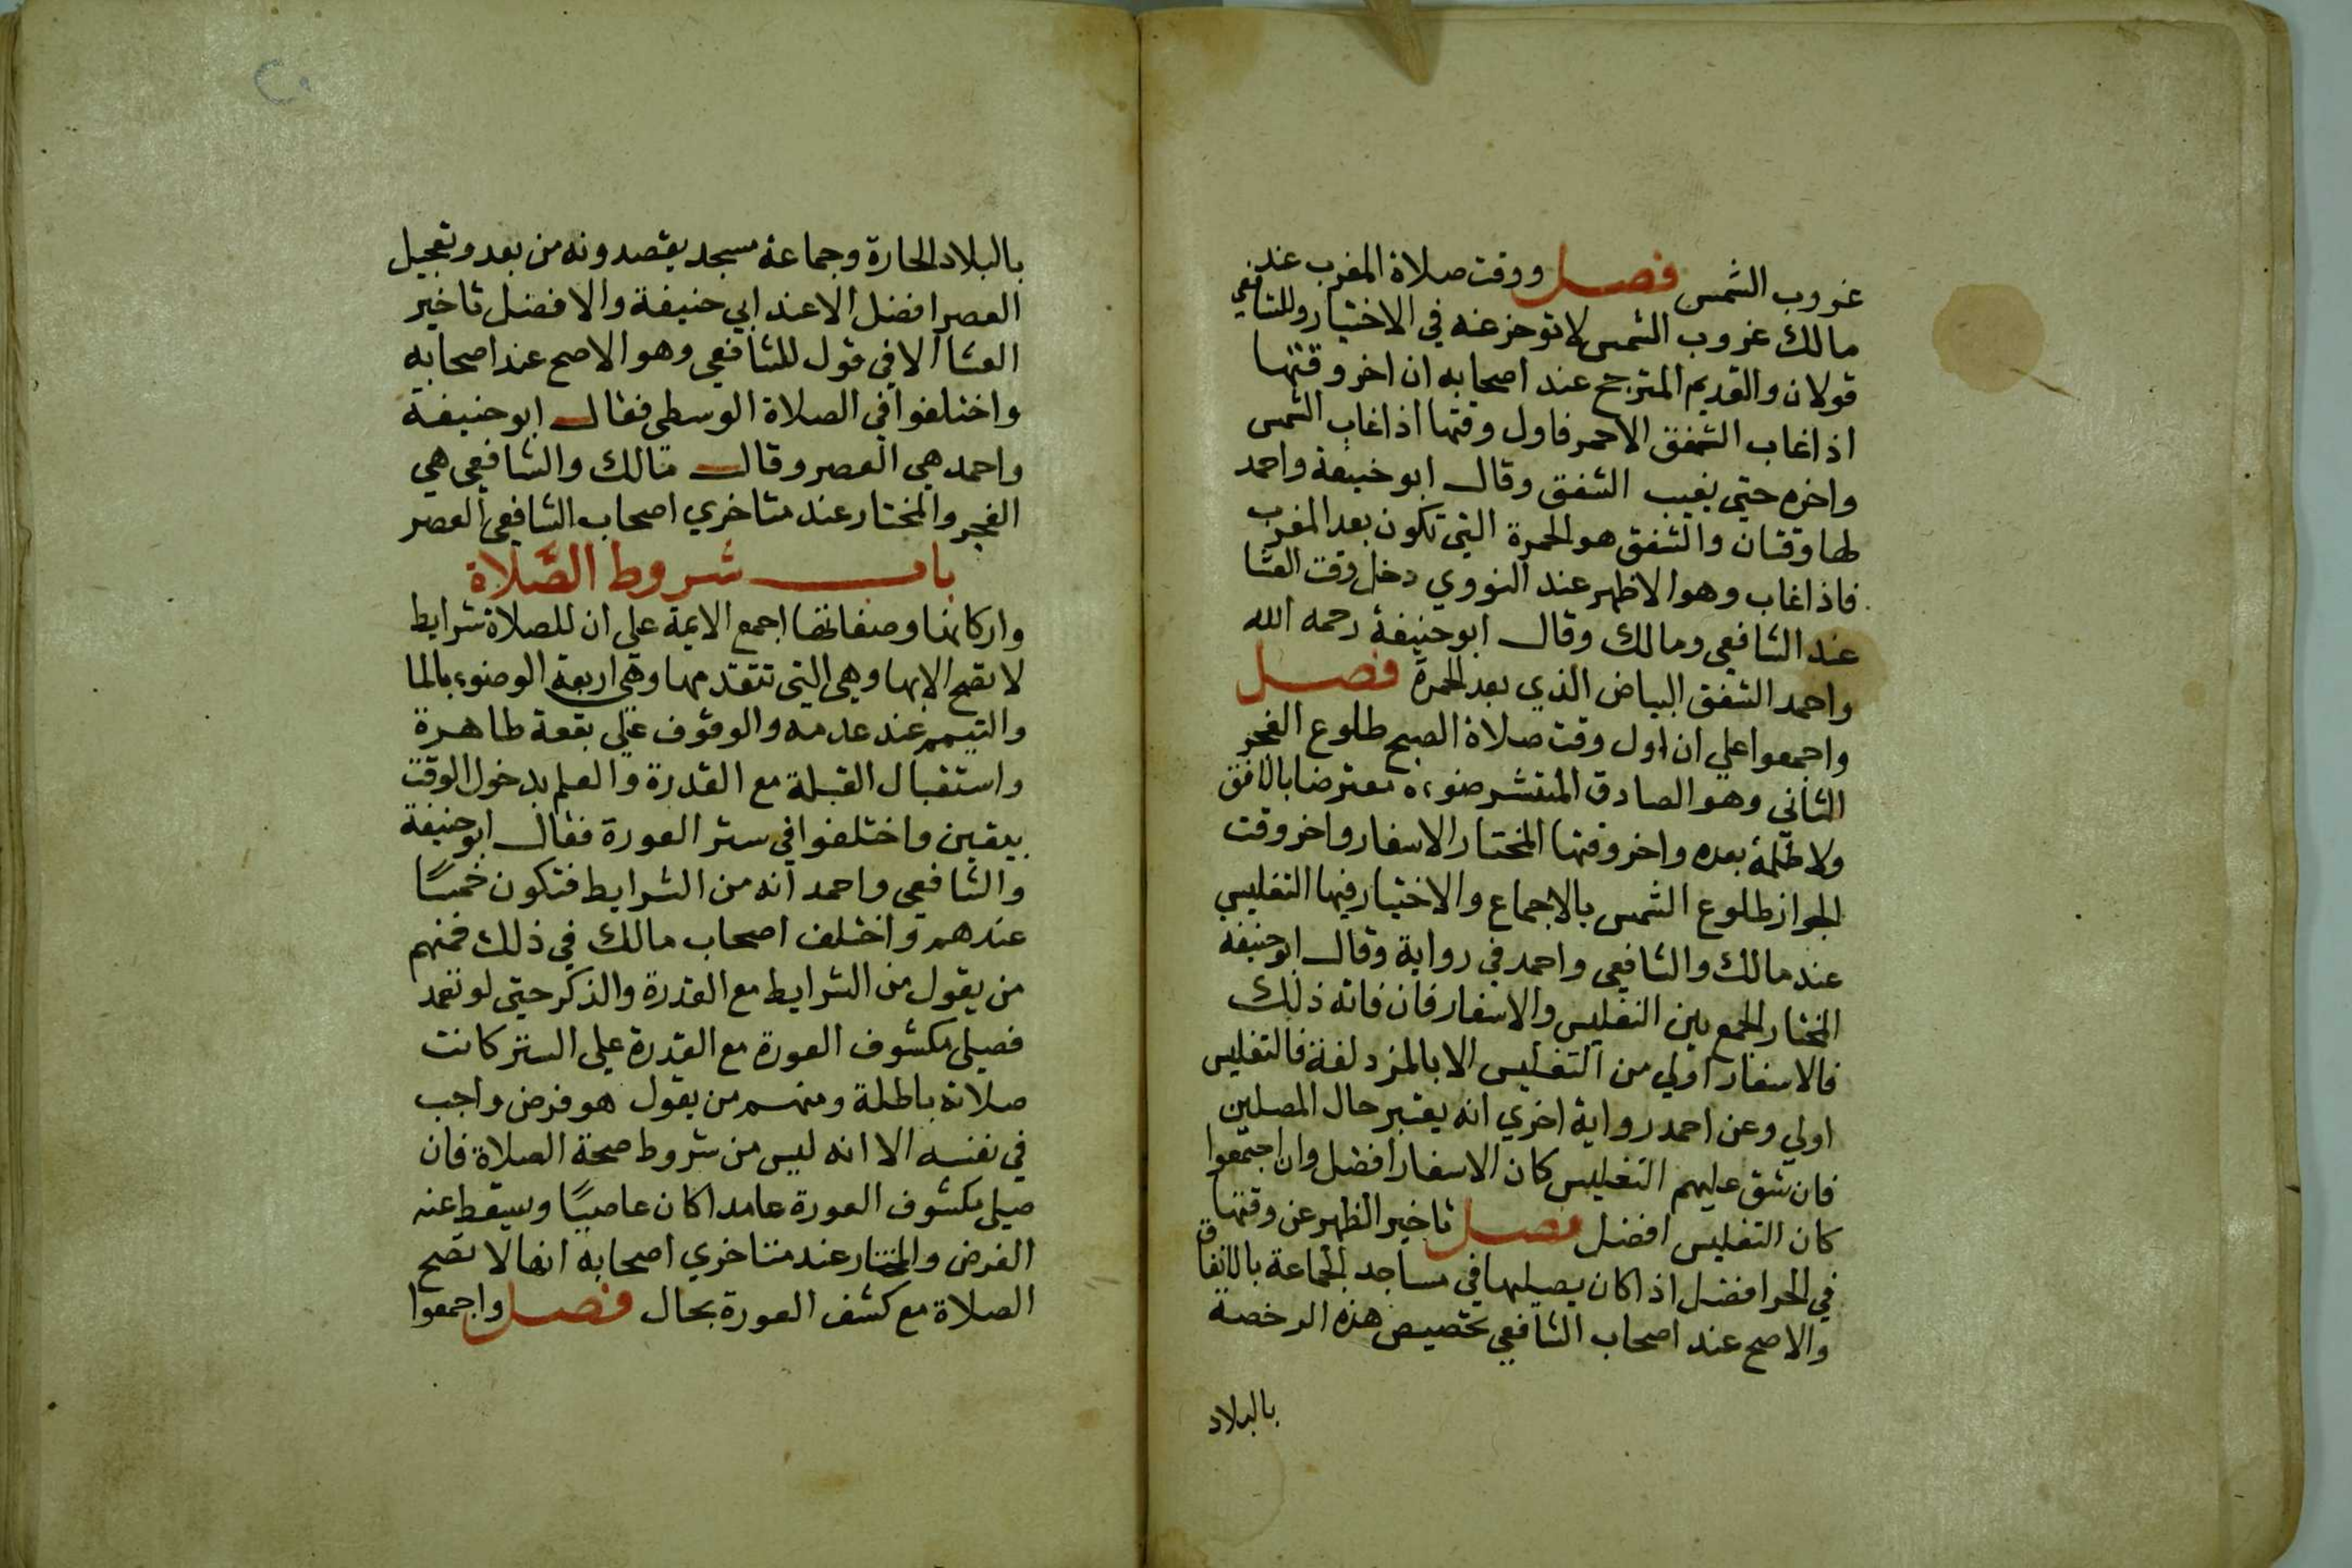 غروب الشمس فصل ووقت صلاة المغرب عند
مالك غروب الشمس لا توخر عنه في الاختيار وللشافعي
قولان والقديم المترجح عند اصحابه ان اخر وقتها
اذا غاب الشفق الاحمر فاول وقتها اذا غاب الشمس
واخره حتي يغيب الشفق وقال ابو حنيفة واحمد
لها وقتان والشفق هو الحمرة التي تكون بعد المغرب
فاذا غاب وهو الاظهر عند النووي دخل وقت العشا
عند الشافعي ومالك وقال ابو حنيفة رحمه الله
واحمد الشفق البياض الذي بعد الحمرة فصل
واجمعوا علي ان اول وقت صلاة الصبح طلوع الفجر
الثاني وهو الصادق المنتشر ضوءه معترضا بالافق
ولا ظلمة بعده واخر وقتها المختار الاسفار واخر وقت
الجواز طلوع الشمس بالاجماع والاختيار فيها التغليس
عند مالك والشافعي واحمد في رواية وقال ابو حنيفة
المختار الجمع بين التغليس والاسفار فان فاته ذلك
فالاسفار اولي من التغليس الا بالمزدلفة فالتغليس
اولي وعن احمد رواية اخري انه يعتبر حال المصلين
فان شق عليهم التغليس كان الاسفار افضل وان اجتمعوا
كان التغليس افضل فصل تاخير الظهر عن وقتها
في الحر افضل اذا كان يصليها في مساجد الجماعة بالاتفاق
والاصح عند اصحاب الشافعي تخصيص هذه الرخصة
بالبلاد
٢٠
بالبلاد الحارة وجماعة مسجد يقصدونه من بعد وتعجيل
العصر افضل الا عند ابي حنيفة والافضل تاخير
العشا الا في قول للشافعي وهو الاصح عند اصحابه
واختلفوا في الصلاة الوسطي فقال ابو حنيفة
واحمد هي العصر وقال مالك والشافعي هي
الفجر والمختار عند متاخري اصحاب الشافعي العصر
باب شروط الصَّلاة
واركانها وصفاتها اجمع الايمة علي ان للصلاة شرايط
لا تصح الا بها وهي التي تتقدمها وهي اربعة الوضوء بالما
والتيمم عند عدمه والوقوف علي بقعة طاهرة
واستقبال القبلة مع القدرة والعلم بدخول الوقت
بيقين واختلفوا في ستر العورة فقال ابو حنيفة
والشافعي واحمد انه من الشرايط فتكون خمسًا
عندهم واختلف اصحاب مالك في ذلك فمنهم
من يقول من الشرايط مع القدرة والذكر حتي لو تعمد
فصلي مكشوف العورة مع القدرة علي الستر كانت
صلاته باطلة ومنهم من يقول هو فرض واجب
في نفسه الا انه ليس من شروط صحة الصلاة فان
صلي مكشوف العورة عامدا كان عاصيًا ويسقط عنه
الفرض والمختار عند متاخري اصحابه انها لا تصح
الصلاة مع كشف العورة بحال فصل واجمعوا